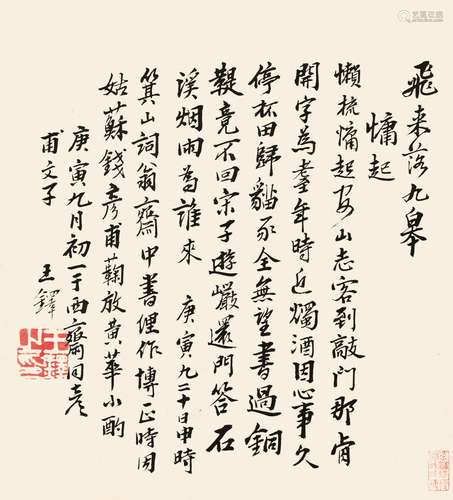 飛来落九皋
慵起
懶梳慵起
山志客到敲門那肯
開字為耋年時近燭酒因心事久
停杯田歸豕全無望書過銅
鞮竟不回宋子遊巖還門答石
溪烟雨為誰來 庚寅九二十日申時
箕山詞翁齋中書俚作博一正時因
姑蘇錢彦甫鞠放黄華小酌
庚寅九月初一于西齋同彦
甫文子
王鐸